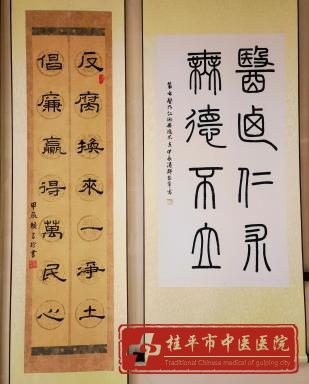 反腐換來一淨土
倡廉贏得萬民心
醫卥仁术
無德不立
桂平市中医医院
Traditional Chinese medical of guiping city